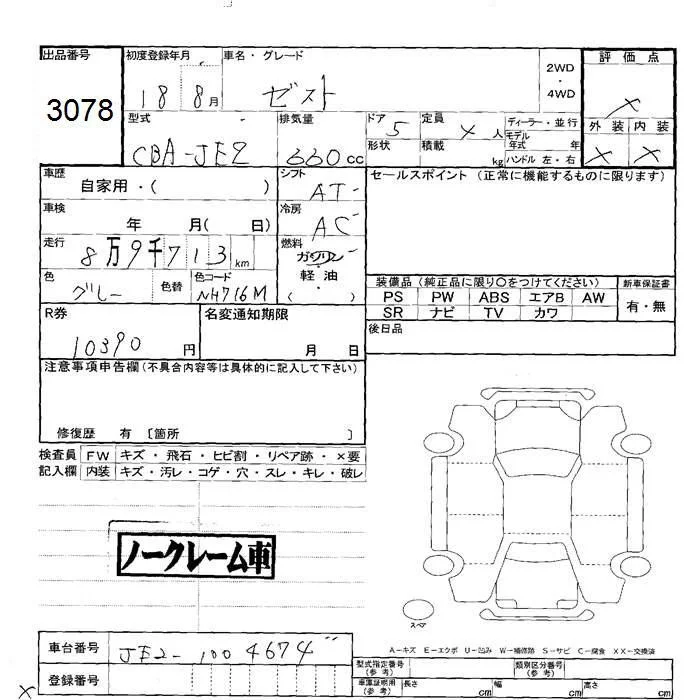 出品番号 初度登録年月 車名・グレード 2WD・4WD 評価点
3078 18 8月 ゼスト ×
型式 排気量 ドア 5 定員 人 ディーラー・並行 外装 内装
CBA-JE2 660cc 形状 積載 kg モデル年式 年 ハンドル 左・右 × ×
車歴 シフト セールスポイント (正常に機能するものに限ります)
自家用・( ) AT
車検 冷房
年 月( 日) AC
走行 燃料
8万9千713km ガソリン
軽油
色 色替 色コード ・
グレー NH716M ( )
装備品 (純正品に限り○をつけてください) 新車保証書
PS PW ABS エアB AW 有・無
SR ナビ TV カワ
R券 名変通知期限 後日品
10390円 月 日
注意事項申告欄(不具合内容等は具体的に記入して下さい)
修復歴 有 〔箇所 〕
検査員 FW キズ・飛石・ヒビ割・リペア跡・×要
記入欄 内装 キズ・汚レ・コゲ・穴・スレ・キレ・破レ
ノークレーム車
スペア
A-キズ E-エクボ U-凹み W-補修跡 S-サビ C-腐食 XX-交換済
車台番号 JE2-1004674
型式指定番号(参考) 類別区分番号(参考)
登録番号 車庫証明用(参考) 長さ cm 幅 cm 高さ cm
×